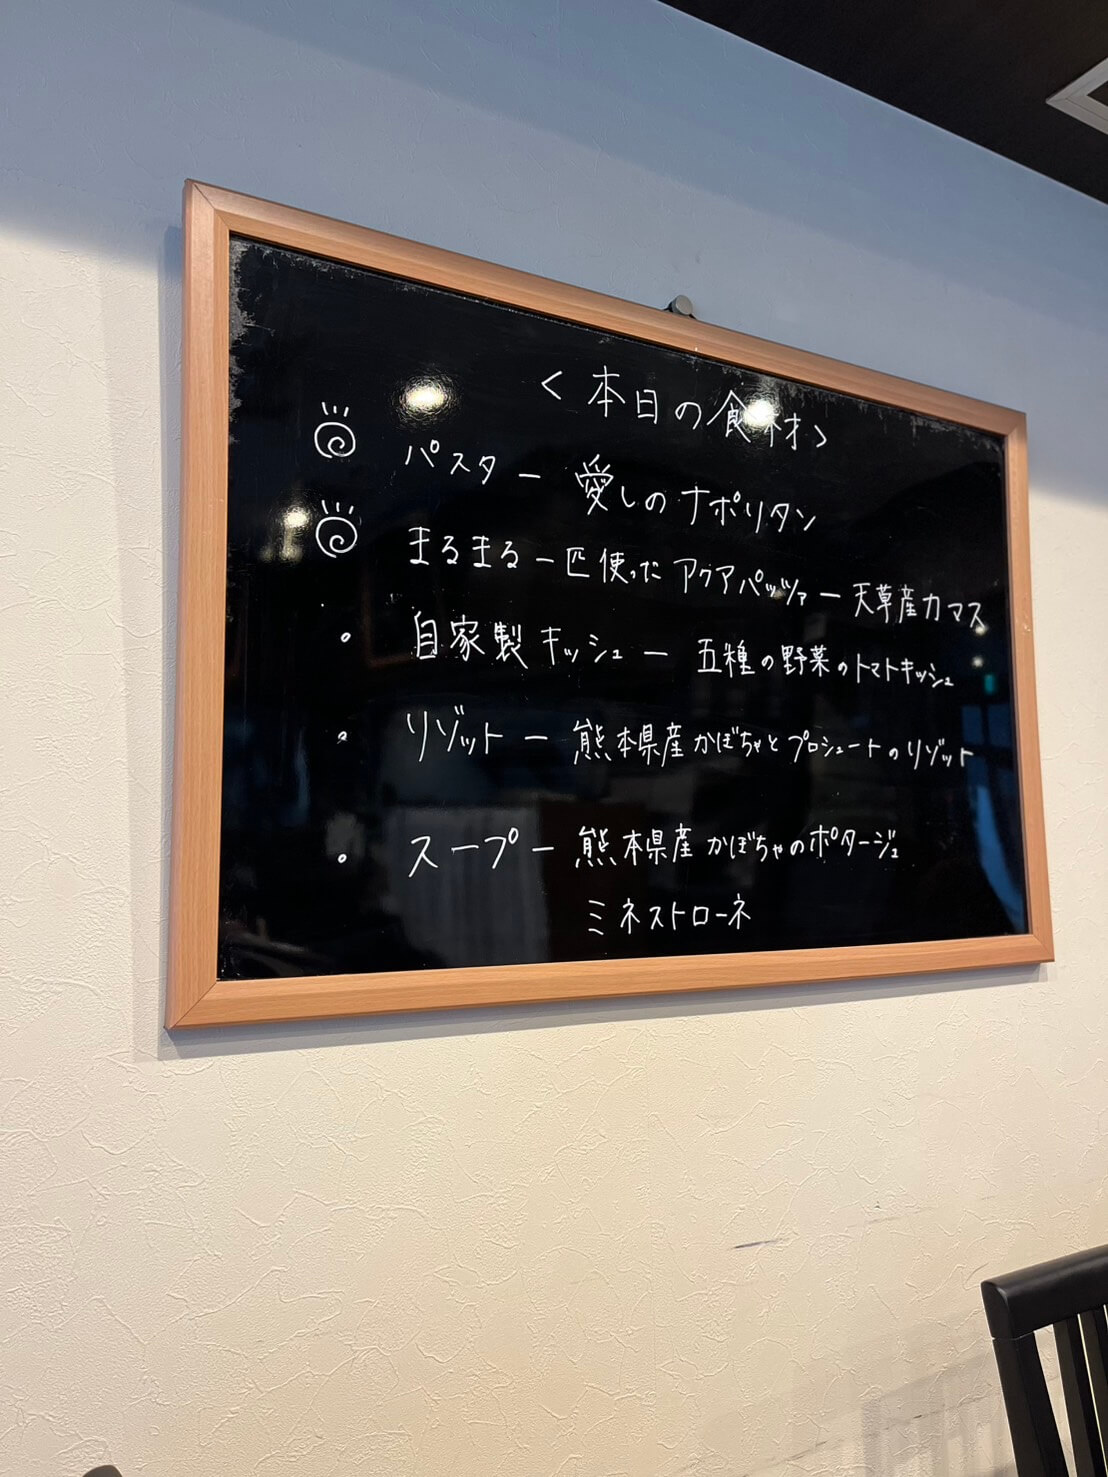 <本日の食材>
パスタ ー 愛しのナポリタン
まるまる一匹使った アクアパッツァ ー 天草産カマス
・ 自家製キッシュ ー 五種の野菜のトマトキッシュ
・ リゾット ー 熊本県産かぼちゃとプロシュートのリゾット
・ スープ ー 熊本県産かぼちゃのポタージュ
ミネストローネ